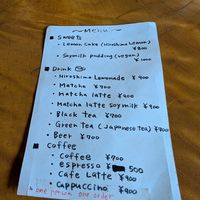 ~Menu~
■ Sweets
• Lemon Cake (Hiroshima Lemon)
¥800
• Soymilk pudding (vegan)
¥1000
■ Drink
• Hiroshima Lemonade ¥900
• Matcha ¥900
• Matcha latte ¥900
• Matcha latte Soymilk ¥900
• Black tea ¥700
• Green Tea (Japanese Tea) ¥700
• Beer ¥700
■ Coffee
• Coffee ¥700
• espresso ¥ 500
• Cafe Latte ¥900
• Cappuccino ¥900
* one person one order